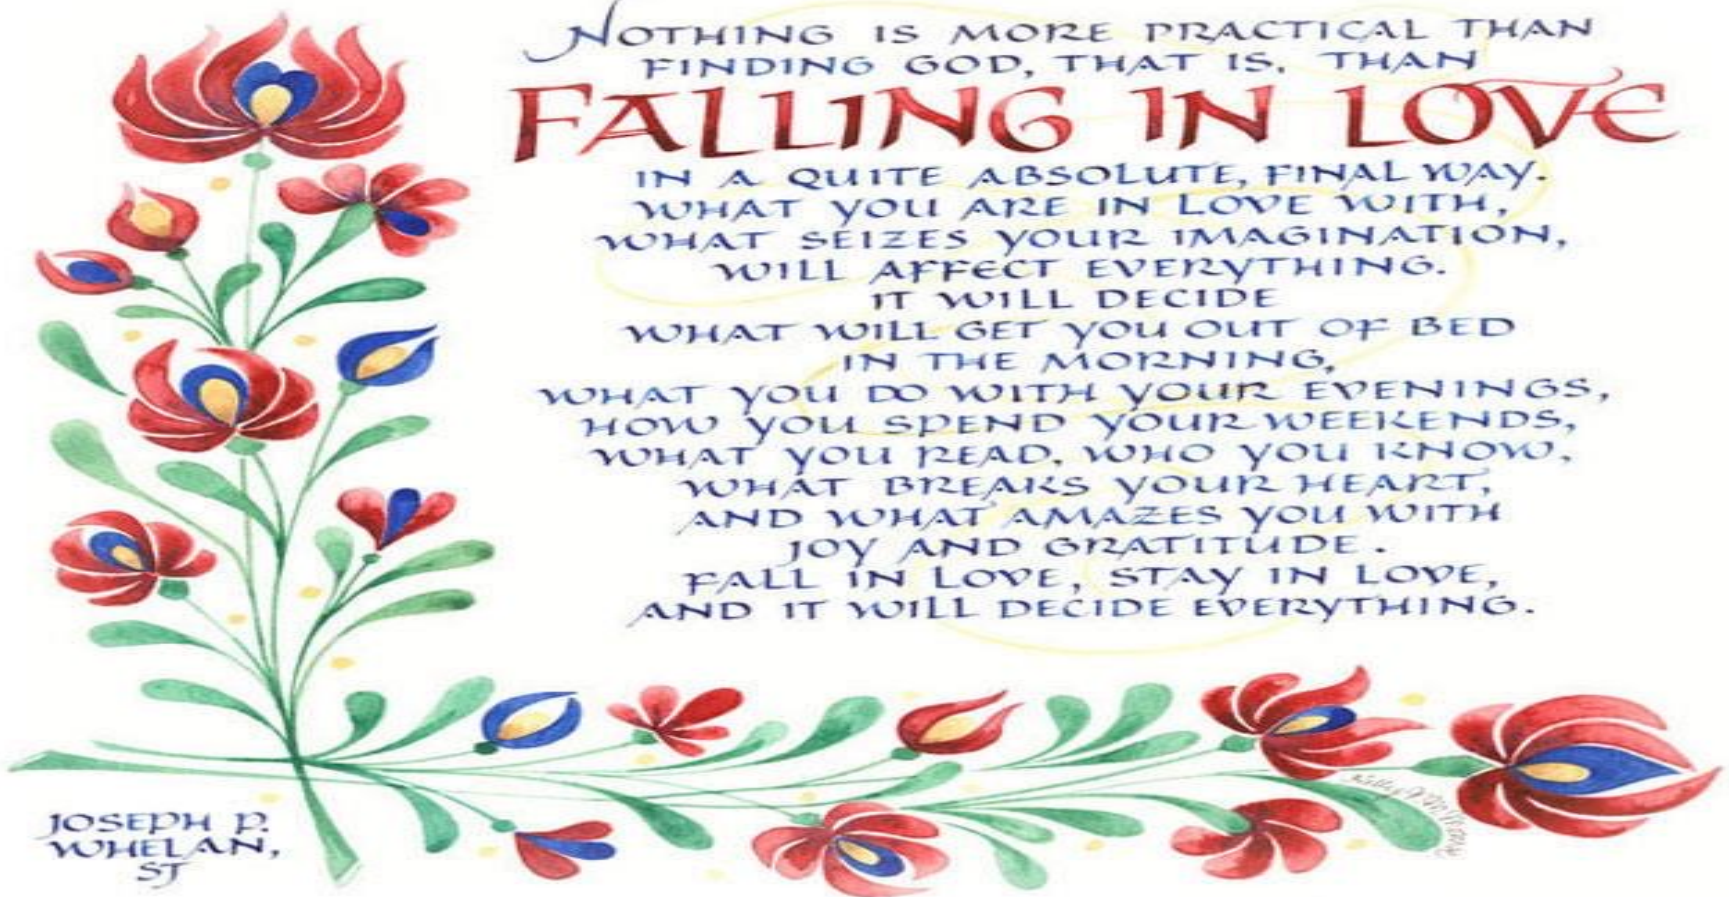 NOTHING IS MORE PRACTICAL THAN
FINDING GOD, THAT IS, THAN
FALLING IN LOVE
IN A QUITE ABSOLUTE, FINAL WAY.
WHAT YOU ARE IN LOVE WITH,
WHAT SEIZES YOUR IMAGINATION,
WILL AFFECT EVERYTHING.
IT WILL DECIDE
WHAT WILL GET YOU OUT OF BED
IN THE MORNING,
WHAT YOU DO WITH YOUR EVENINGS,
HOW YOU SPEND YOUR WEEKENDS,
WHAT YOU READ, WHO YOU KNOW,
WHAT BREAKS YOUR HEART,
AND WHAT AMAZES YOU WITH
JOY AND GRATITUDE.
FALL IN LOVE, STAY IN LOVE,
AND IT WILL DECIDE EVERYTHING.
JOSEPH P.
WHELAN,
SJ